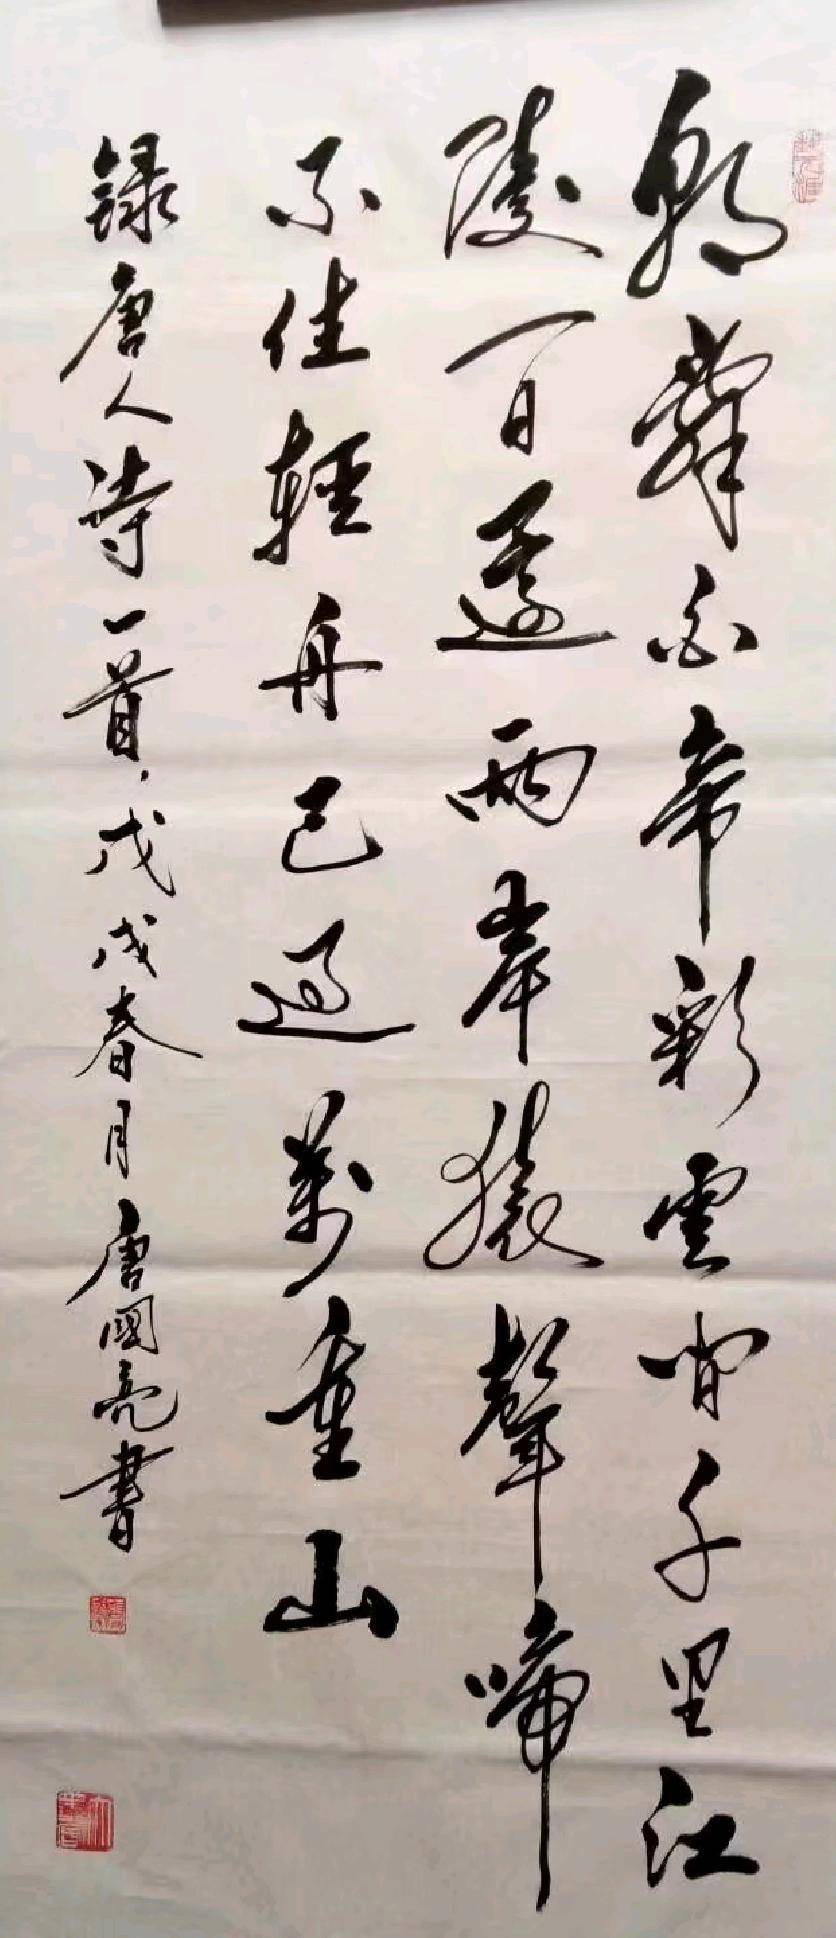 朝辞白帝彩雲間千里江
陵百還兩岸猿聲啼
不住輕舟已過萬重山
録唐人詩一首，戊戌春月唐國亮書